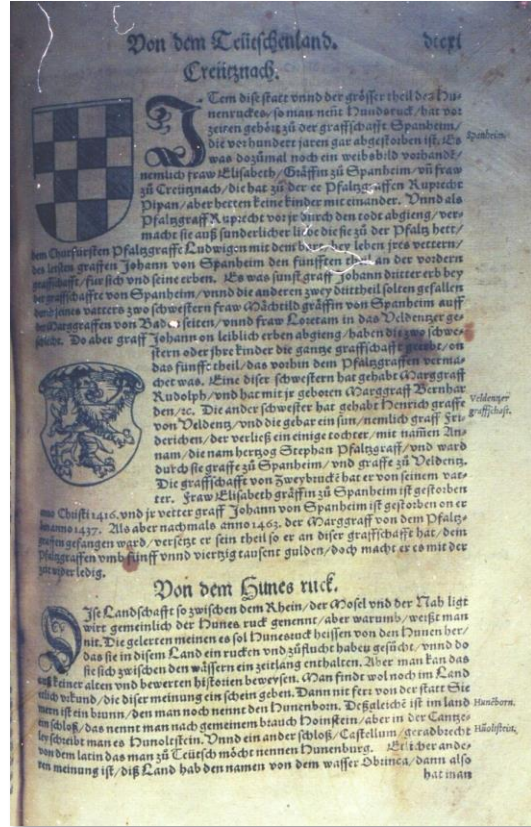 Von dem Teütschenland. dcxi
Creütznach.
ITem dise statt vnnd der grösser theil des Hu-
nenruckes/so man neñt Hundsruck/hat vor
zeiten gehört zů der graffschafft Spanheim/
die vor hundert jaren gar abgestorben ist. Es
was dozůmal noch ein weibsbild vorhandẽ/
nemlich fraw Elisabeth/Gräffin zů Spanheim/vñ fraw
zů Creütznach/die hat zů der ee Pfaltzgraffen Ruprecht
Pipan/aber hetten keine kinder mit einander. Vnnd als
Pfaltzgraff Ruprecht vor jr durch den todt abgieng/ver-
macht sie auß sunderlicher liebe die sie zů der Pfaltz hett/
dem Churfürsten Pfaltzgraffe Ludwigen mit dem bey leben jres vettern/
des letsten graffen Johann von Spanheim den fünfften theil an der vordern
graffschafft/für sich vnd seine erben. Es was sunst graff Johann dritter erb bey
der graffschafft von Spanheim/vnnd die anderen zwey drittheil solten gefallen
seines vatters zwo schwestern fraw Mächtild gräffin von Spanheim auff
Marggraffen von Baden seiten/vnnd fraw Loretam in das Veldentzer ge-
schlecht. Do aber graff Johann on leiblich erben abgieng/haben die zwo schwe-
stern oder jhre kinder die gantze graffschafft geerbt/on
das fünfft theil/das vorhin dem Pfaltzgraffen verma-
chet was. Eine diser schwestern hat gehabt Marggraff
Rudolph/vnd hat mit jr geboren Marggraff Bernhar
den/ɾc. Die ander schwester hat gehabt Henrich graffe
von Veldentz/vnd die gebar ein sun/nemlich graff Fri-
derichen/der verließ ein einige tochter/mit namen An-
nam/die nam hertzog Stephan Pfaltzgraff/vnd ward
durch sie graffe zů Spanheim/vnd graffe zů Veldentz.
Die graffschafft von Zweybruck hat er von seinem vat-
ter. Fraw Elisabeth gräffin zů Spanheim ist gestorben
anno Christi 1416. vnd jr vetter graff Johann von Spanheim ist gestorben on er
anno 1437. Als aber nachmals anno 1463. der Marggraff von dem Pfaltz-
graffen gefangen ward/versetzt er sein theil so er an diser graffschafft hat/dem
Pfaltzgraffen vmb fünff vnnd viertzig tausent gulden/doch macht er es mit der
zeit wider ledig.
Spanheim.
Veldentzer
graffschaft.
Von dem Hunes ruck.
DIse Landschafft so zwischen dem Rhein/der Mosel vnd der Nah ligt
wirt gemeinlich der Hunes ruck genennt/aber warumb/weißt man
nit. Die gelerten meinen es sol Hunesruck heissen von den Hunen her/
das sie in disem Land ein rucken vnd zůflucht haben gesůcht/vnnd do
sie sich zwischen den wässern ein zeitlang enthalten. Aber man kan das
auß keiner alten vnd bewerten historien beweysen. Man findt wol noch im Land
etlich vrkund/die diser meinung ein schein geben. Dann nit ferr von der statt Sie
mern ist ein brunn/den man noch nennt den Hunenborn. Deßgleichẽ ist im land
ein schloß/das nennt man nach gemeinem brauch Hoinstein/aber in der Cantze-
ley schreibt man es Hunoltstein. Vnnd ein ander schloß/Castellum/geradbrecht
von dem latin das man zů Teütsch möcht nennen Hunenburg. Etlicher ande-
ren meinung ist/diß Land hab den namen von dem wasser Obrinca/dann also
hat man
Hunẽborn.
Hůoltstein.